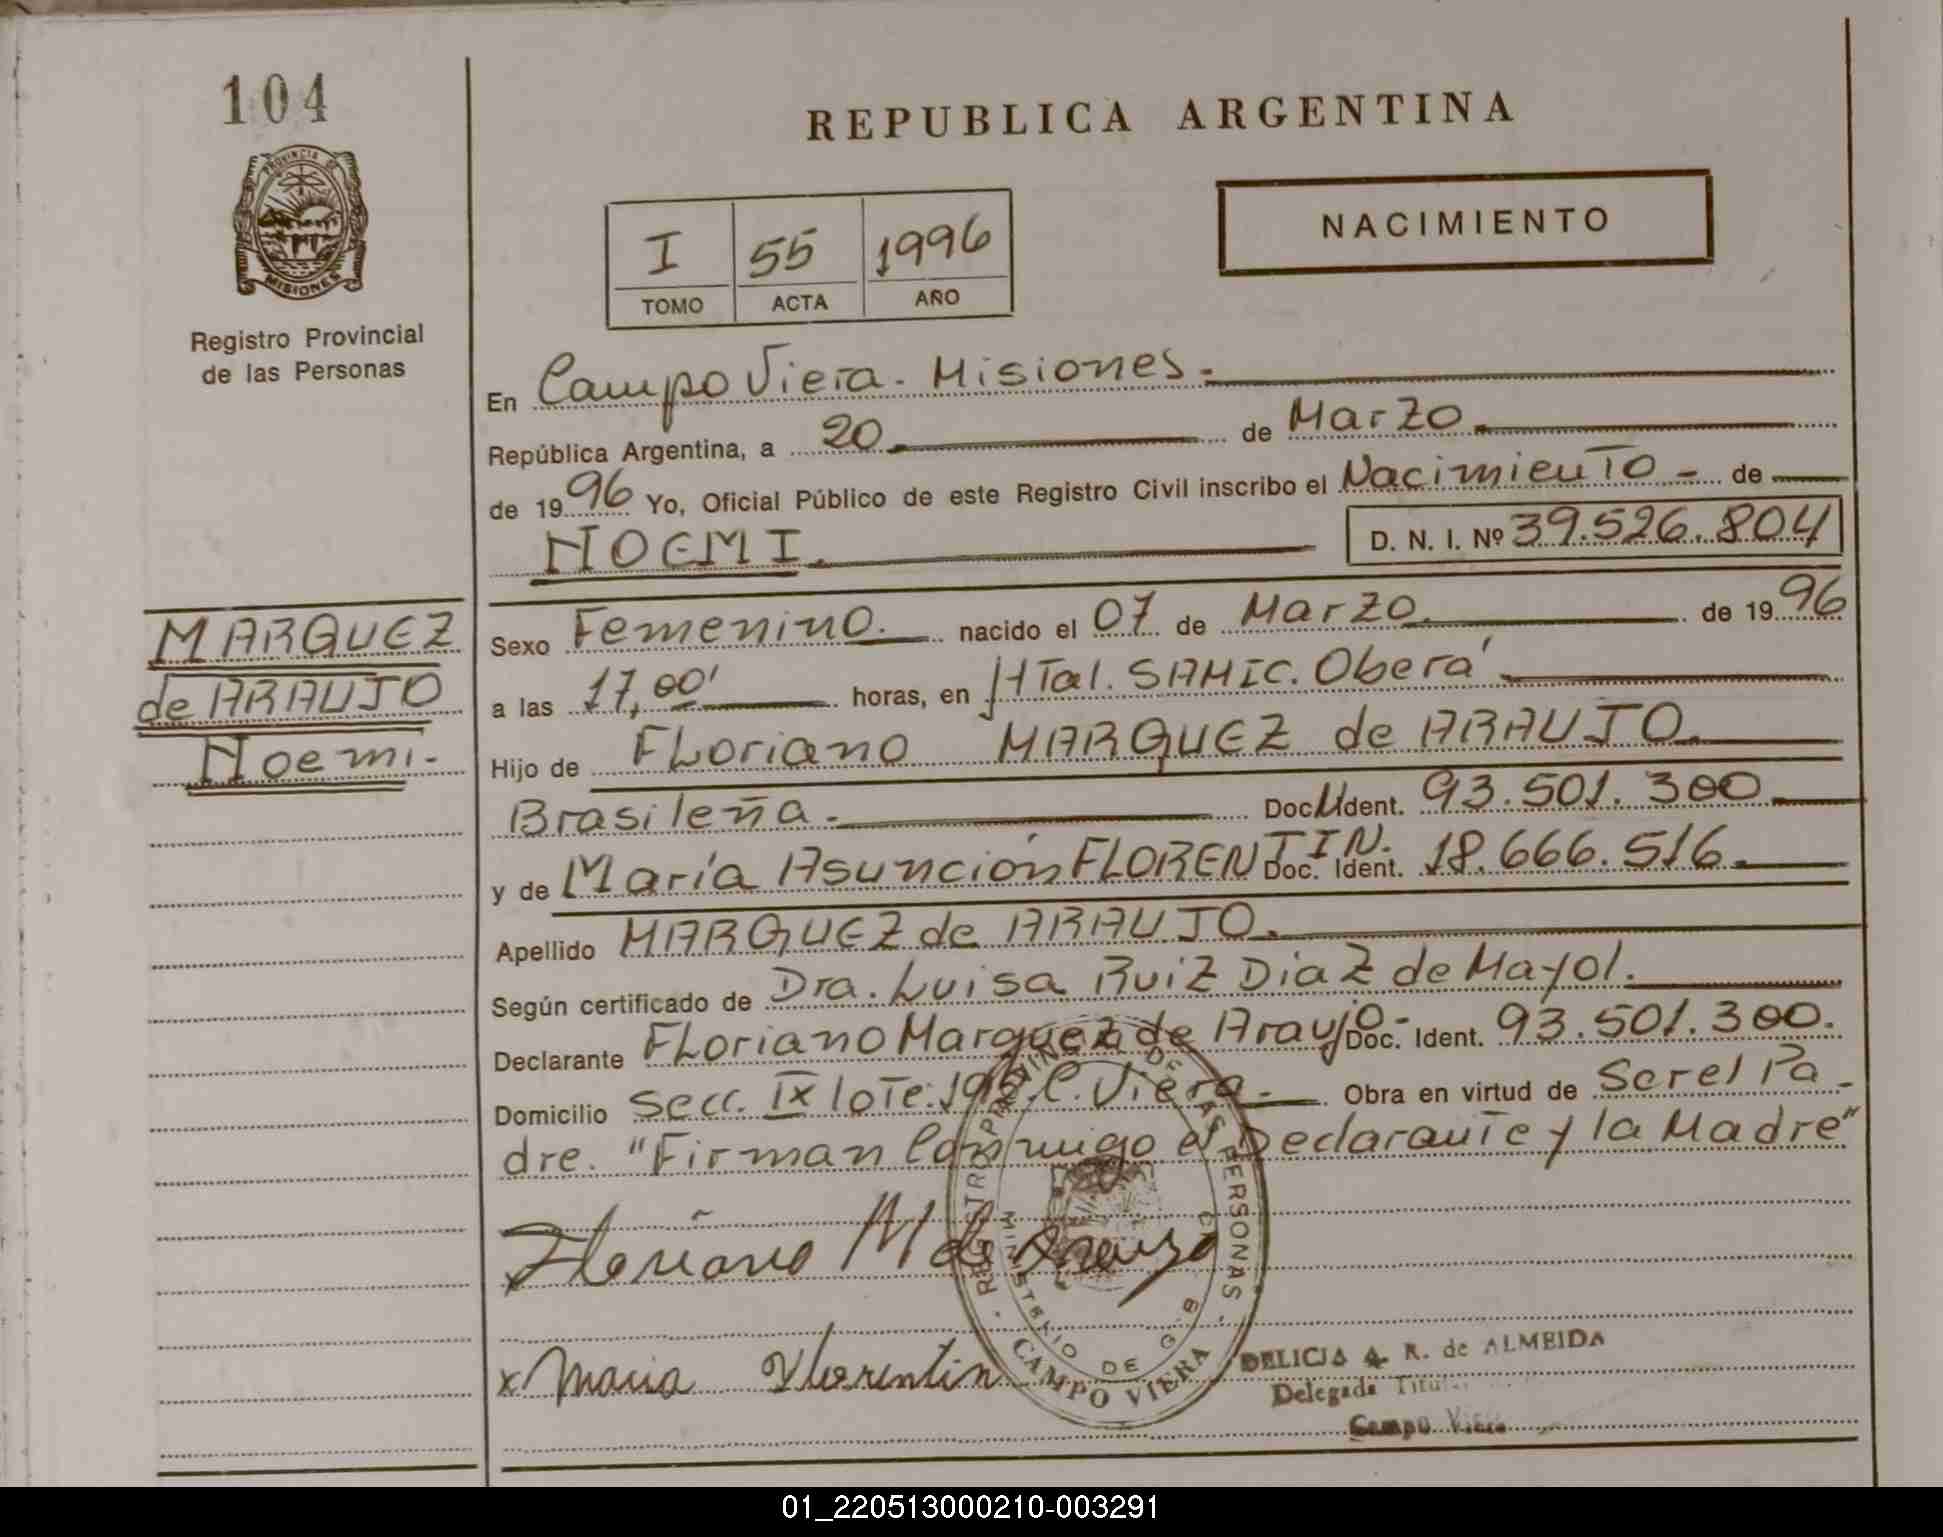 104
REPUBLICA ARGENTINA
PROVINCIA DE
MISIONES
Registro Provincial
de las Personas
NACIMIENTO
I 55 1996
TOMO ACTA AÑO
En Campo Viera - Misiones -
República Argentina, a 20 de Marzo
de 1996 Yo, Oficial Público de este Registro Civil inscribo el Nacimiento - de
NOEMI. D. N. I. Nº 39.526.804
MARQUEZ
de ARAUJO
Noemi.-
Sexo Femenino. nacido el 07 de Marzo. de 1996
a las 17,00' horas, en HTal. SAMIC. Oberá
Hijo de FLoriano MARQUEZ de ARAUJO.
Brasileña. Doc. Ident. 93.501.300
y de María Asunción FLORENTIN. Doc. Ident. 18.666.516.
Apellido MARQUEZ de ARAUJO.
Según certificado de Dra. Luisa Ruiz Diaz de Mayol.
Declarante FLoriano Marquez de Araujo- Doc. Ident. 93.501.300.
Domicilio Secc. IX loTe: C. Viera. Obra en virtud de Serel Pa-
dre. "Firman Conmigo el Declarante y la Madre"
Floriano M de Araujo
x Maria Florentin
REGISTRO PROVINCIAL DE LAS PERSONAS
MINISTERIO DE G.
CAMPO VIERA
DELICIA A. R. de ALMEIDA
Delegada Titular
Campo Viera
01_220513000210-003291